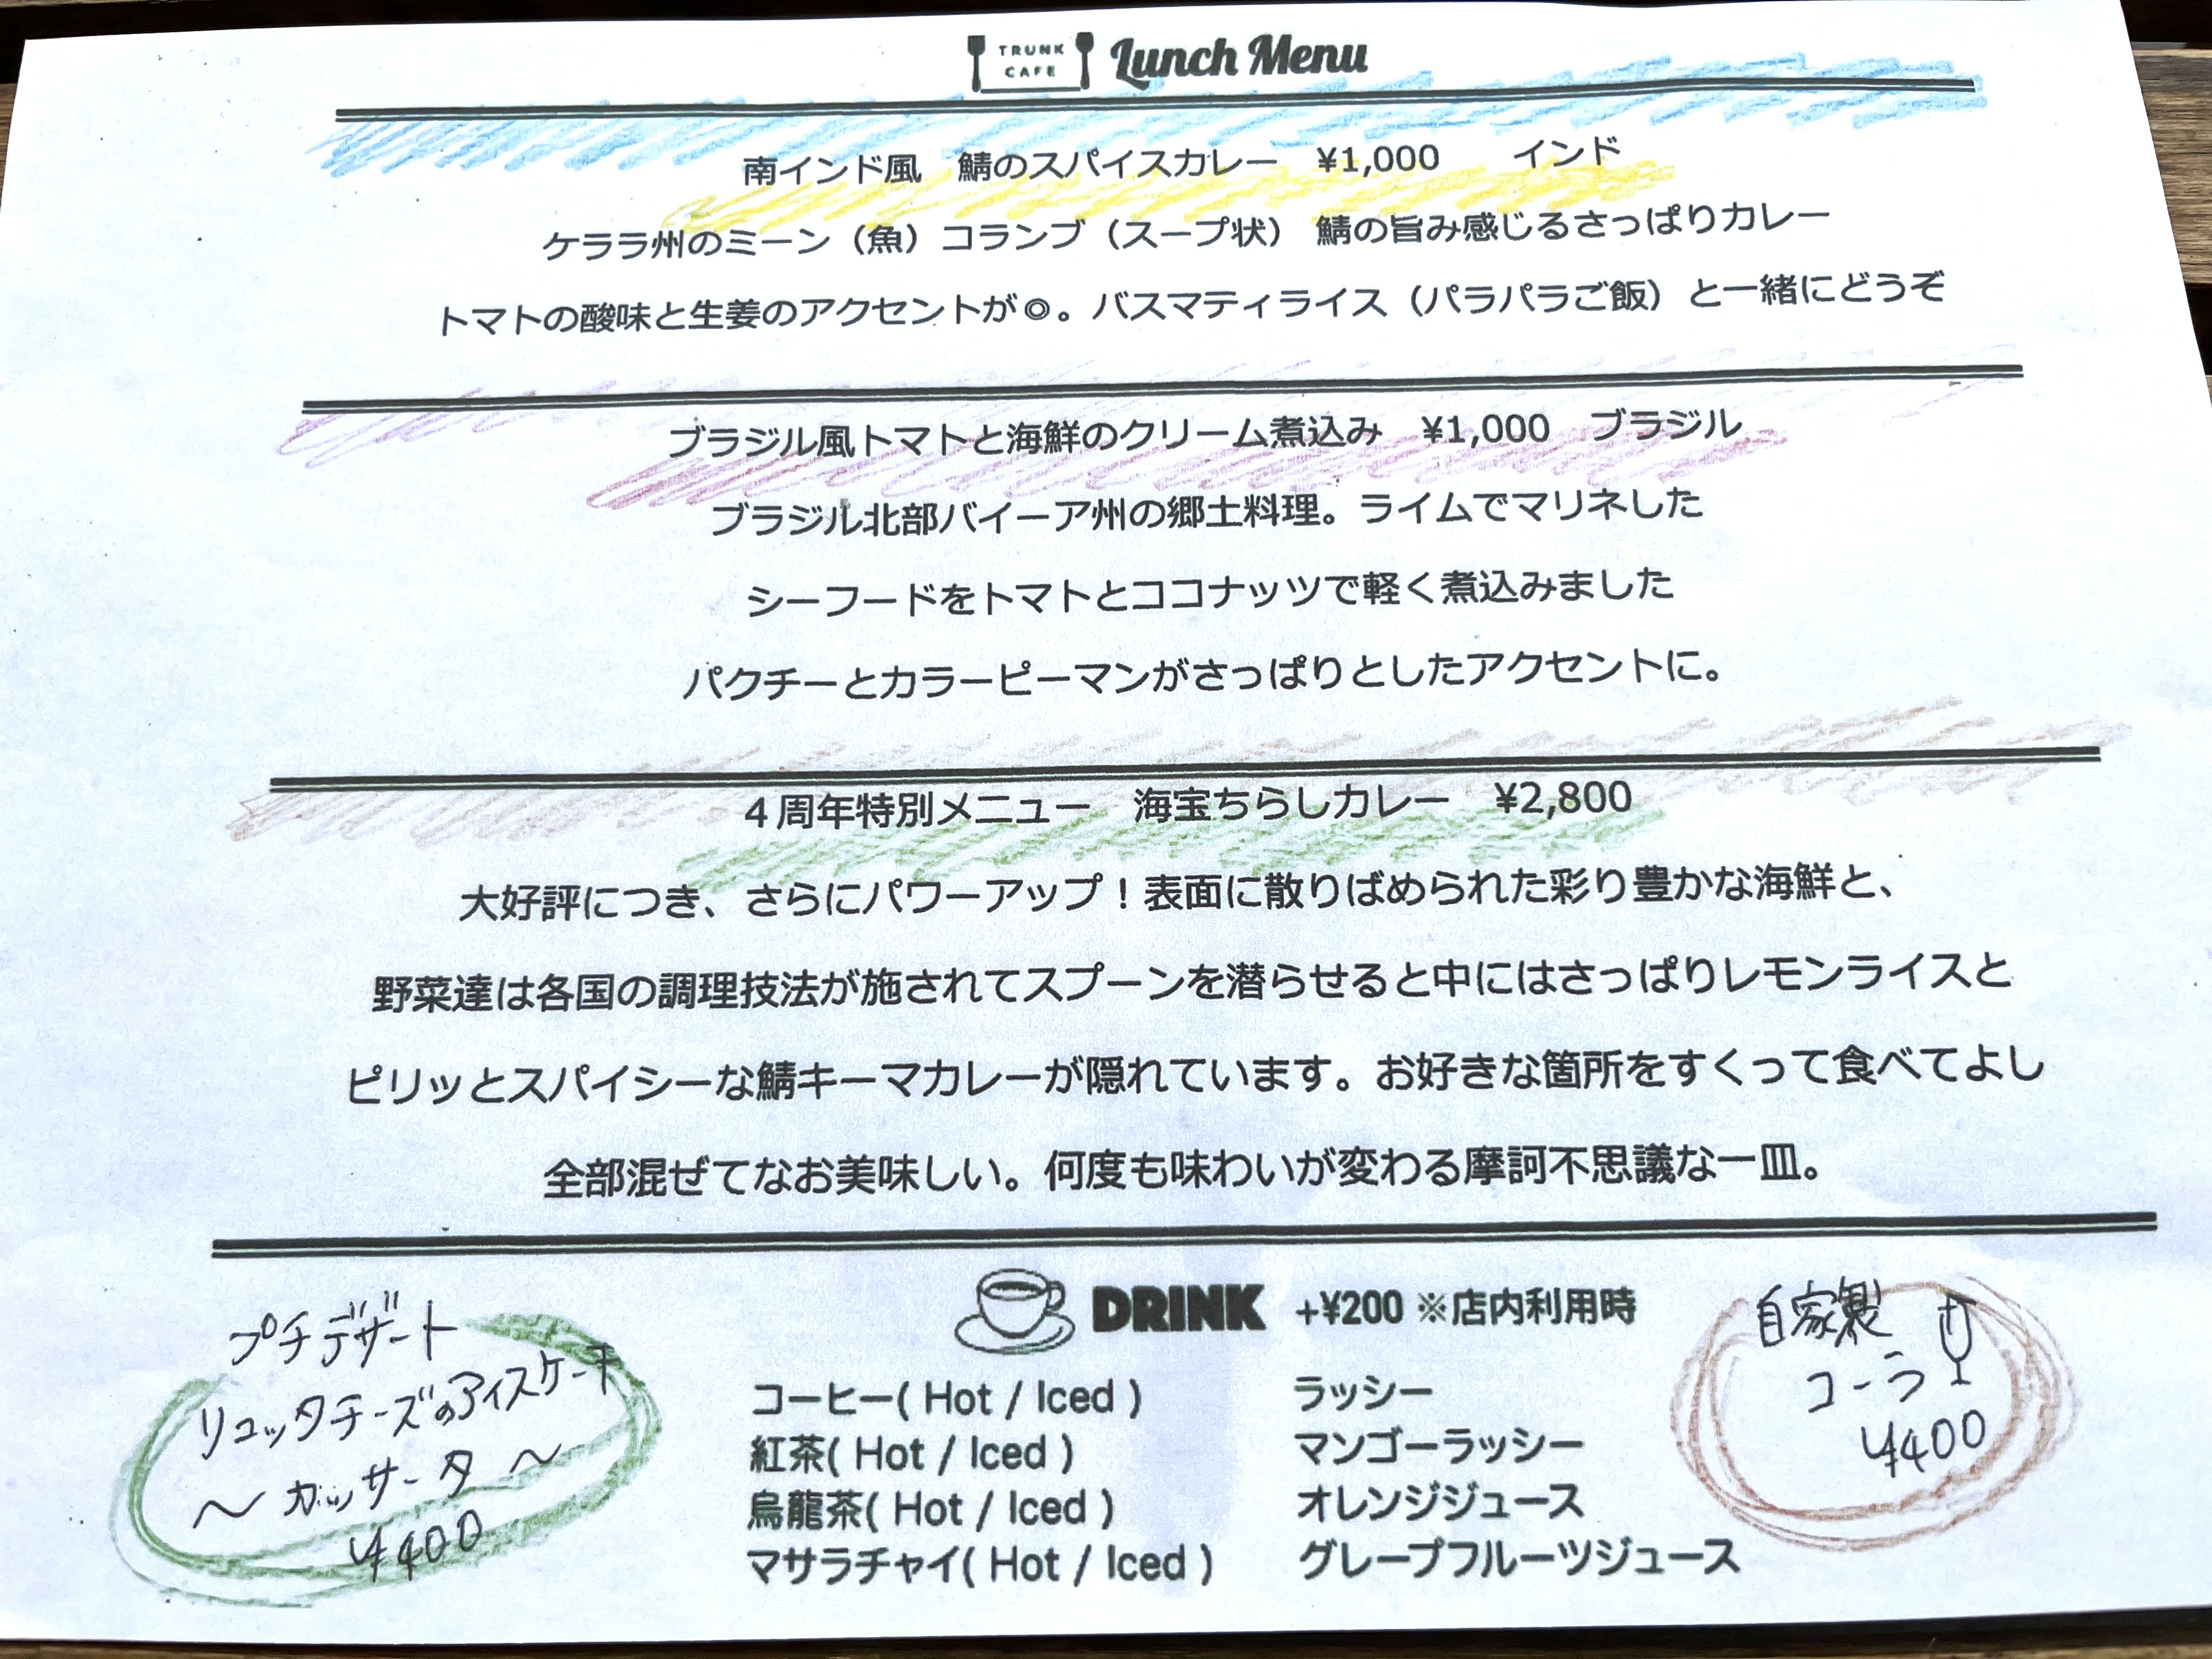 TRUNK CAFE Lunch Menu
南インド風　鯖のスパイスカレー　¥1,000　　インド
ケララ州のミーン（魚）コランブ（スープ状） 鯖の旨み感じるさっぱりカレー
トマトの酸味と生姜のアクセントが◎。バスマティライス（パラパラご飯）と一緒にどうぞ
ブラジル風トマトと海鮮のクリーム煮込み　¥1,000　ブラジル
ブラジル北部バイーア州の郷土料理。ライムでマリネした
シーフードをトマトとココナッツで軽く煮込みました
パクチーとカラーピーマンがさっぱりとしたアクセントに。
４周年特別メニュー　海宝ちらしカレー　¥2,800
大好評につき、さらにパワーアップ！表面に散りばめられた彩り豊かな海鮮と、
野菜達は各国の調理技法が施されてスプーンを潜らせると中にはさっぱりレモンライスと
ピリッとスパイシーな鯖キーマカレーが隠れています。お好きな箇所をすくって食べてよし
全部混ぜてなお美味しい。何度も味わいが変わる摩訶不思議な一皿。
プチデザート
リコッタチーズのアイスケーキ
～ カッサータ ～
¥400
DRINK +¥200 ※店内利用時
コーヒー( Hot / Iced )
紅茶( Hot / Iced )
烏龍茶( Hot / Iced )
マサラチャイ( Hot / Iced )
ラッシー
マンゴーラッシー
オレンジジュース
グレープフルーツジュース
自家製
コーラ
¥400